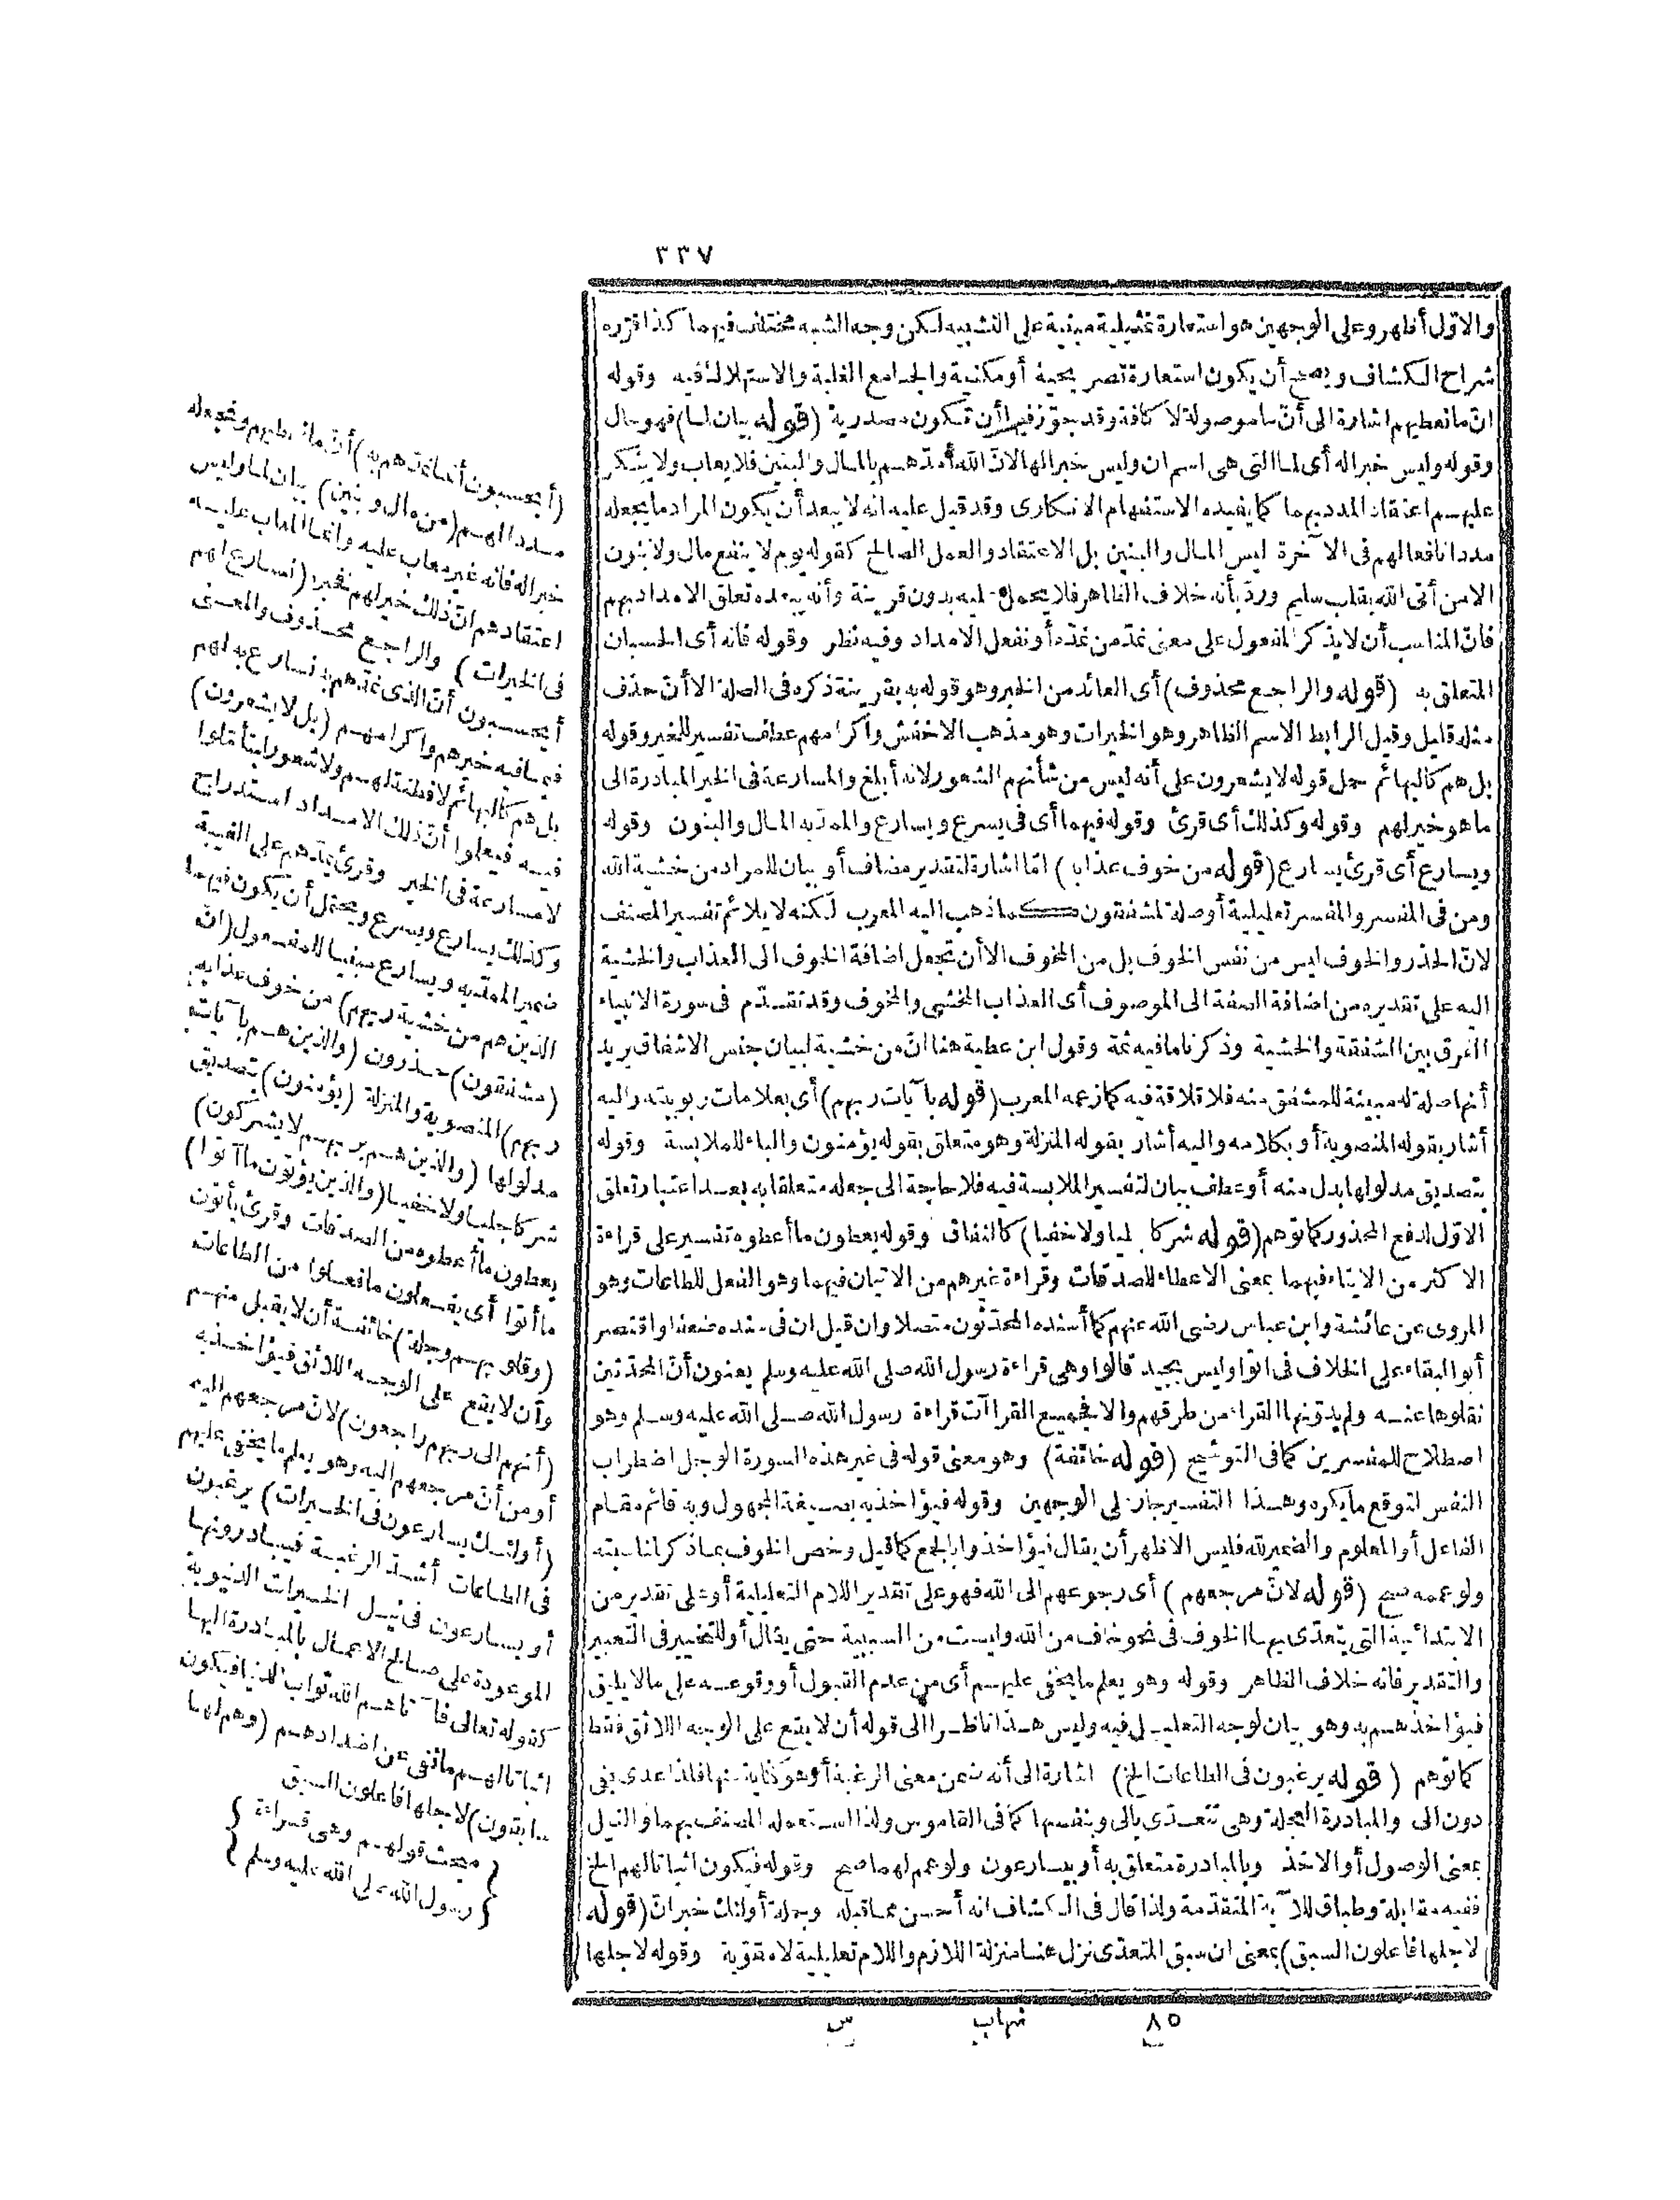 ٣٣٧
والاوّل أظهر وعلى الوجهين هو استعارة تمثيلية مبنية على التشبيه لكن وجه الشبه مختلف فيهما كذا قرّره
شراح الكشاف ويصح أن يكون استعارة تصريحية أو مكنية والجامع الغلبة والاستهلاك فيه وقوله
انّ ما نعطيهم اشارة الى أنّ ما موصولة لا كافة وقد جوّز فيها أن تكون مصدرية (قوله بيان لما) فهو حال
وقوله وليس خبرا له أى لما التى هى اسم ان وليس خبرا لها لانّ الله أمدّهم بالمال والبنين فلا يعاب ولا ينكر
عليهم اعتقاد المدد بهما كما يفيده الاستفهام الانكارى وقد قيل عليه انه لا يبعد أن يكون المراد ما يجعله
مددا نافعا لهم فى الآخرة ليس المال والبنين بل الاعتقاد والعمل الصالح كقوله يوم لا ينفع مال ولا بنون
الا من أتى الله بقلب سليم وردّ بأنه خلاف الظاهر فلا يحمل عليه بدون قرينة وأنه يبعده تعلق الامداد بهم
فانّ المناسب أن لا يذكر المفعول على معنى نمدّ من نمدّه أو نفعل الامداد وفيه نظر وقوله فانه أى الحسبان
المتعلق به (قوله والراجع محذوف) أى العائد من الخبر وهو قوله به بقرينة ذكره فى الصلة الا أنّ حذف
مثله قليل وقيل الرابط الاسم الظاهر وهو الخيرات وهو مذهب الاخفش واكرامهم عطف تفسير للخير وقوله
بل هم كالبهائم حمل قوله لا يشعرون على أنه ليس من شأنهم الشعور لانه أبلغ والمسارعة فى الخير المبادرة الى
ما هو خير لهم وقوله وكذلك أى قرئ وقوله فيهما أى فى يسرع ويسارع والممدّ به المال والبنون وقوله
ويسارع أى قرئ يسارع (قوله من خوف عذابه) امّا اشارة لتقدير مضاف أو بيان للمراد من خشية الله
ومن فى المفسر والمفسر تعليلية أو صلة لمشفقون كما ذهب اليه المعرب لكنه لا يلائم تفسير المصنف
لانّ الحذر والخوف ليس من نفس الخوف بل من المخوف الا أن تجعل اضافة الخوف الى العذاب والخشية
اليه على تقديره من اضافة الصفة الى الموصوف أى العذاب المخشى والمخوف وقد تقدّم فى سورة الانبياء
الفرق بين الشفقة والخشية وذكرنا ما فيه ثمة وقول ابن عطية هنا انّ من خشية لبيان جنس الاشفاق يريد
أنها صلة له مبينة للمشفق منه فلا قلاقة فيه كما زعمه المعرب (قوله بآيات ربهم) أى بعلامات ربوبيته واليه
أشار بقوله المنصوبة أو بكلامه واليه أشار بقوله المنزلة وهو متعلق بقوله يؤمنون والباء للملابسة وقوله
بتصديق مدلولها بدل منه أو عطف بيان لتفسير الملابسة فيه فلا حاجة الى جعله متعلقا به بعد اعتبار تعلق
الاوّل لدفع المحذور كما توهم (قوله شركا جليا ولا خفيا) كالنفاق وقوله يعطون ما أعطوه تفسير على قراءة
الاكثر من الايتاء فيهما بمعنى الاعطاء للصدقات وقراءة غيرهم من الاتيان فيهما وهو الفعل للطاعات وهو
المروى عن عائشة وابن عباس رضى الله عنهم كما أسنده المحدّثون متصلا وان قيل ان فى سنده ضعفا واقتصر
أبو البقاء على الخلاف فى اتوا وليس بجيد قالوا وهى قراءة رسول الله صلى الله عليه وسلم يعنون أنّ المحدّثين
نقلوها عنه ولم يدوّنها القراء من طرقهم والا فجميع القراآت قراءة رسول الله صلى الله عليه وسلم وهو
اصطلاح للمفسرين كما فى التوشيح (قوله خائفة) وهو معنى قوله فى غير هذه السورة الوجل اضطراب
النفس لتوقع ما يكره وهذا التفسير جار على الوجهين وقوله فيؤاخذ به بصيغة المجهول وبه قائم مقام
الفاعل أو المعلوم والضمير لله فليس الاظهر أن يقال فيؤاخذوا بالجمع كما قيل وخص الخوف بما ذكر لمناسبته
ولو عممه صح (قوله لانّ مرجعهم) أى رجوعهم الى الله فهو على تقدير اللام التعليلية أو على تقدير من
الابتدائية التى يتعدّى بها الخوف فى نحو خاف من الله وليست من السببية حتى يقال أو للتخيير فى التعبير
والتقدير فانه خلاف الظاهر وقوله وهو يعلم ما يخفى عليهم أى من عدم القبول أو وقوعه على ما لا يليق
فيؤاخذهم به وهو بيان لوجه التعليل فيه وليس هذا ناظرا الى قوله أن لا يقع على الوجه اللائق فقط
كما توهم (قوله يرغبون فى الطاعات الخ) اشارة الى أنه ضمن معنى الرغبة أو هو كناية عنها فلذا عدى بفى
دون الى والمبادرة العجلة وهى تتعدّى بالى وبنفسها كما فى القاموس ولذا استعمله المصنف بهما والنيل
بمعنى الوصول أو الاخذ وبالمبادرة متعلق به أو بيسارعون ولو عمم لهما صح وقوله فيكون اثباتا لهم الخ
ففيه مقابلة وطباق للآية المتقدّمة ولذا قال فى الكشاف انه أحسن مما قبله وجملة أولئك خبر انّ (قوله
لاجلها فاعلون السبق) بمعنى ان سبق المتعدّى نزل هنا منزلة اللازم واللام تعليلية لا مقوّية وقوله لاجلها
٨٥ شهاب س
(أيحسبون أنما نمدّهم به) أنّ ما نعطيهم ونجعله
مددا لهم (من مال وبنين) بيان لما وليس
خبرا له فانه غير معاب عليه وانما المعاب عليه
اعتقادهم انّ ذلك خير لهم فخبره (نسارع لهم
فى الخيرات) والراجع محذوف والمعنى
أيحسبون أنّ الذى نمدّهم به نسارع به لهم
فيما فيه خيرهم واكرامهم (بل لا يشعرون)
بل هم كالبهائم لا فطنة لهم ولا شعور ليتأمّلوا
فيه فيعلوا أنّ ذلك الامداد استدراج
لا مسارعة فى الخير وقرئ يمدّهم على الغيبة
وكذلك يسارع ويسرع ويحتمل أن يكون فيهما
ضمير الممدّ به ويسارع مبنيا للمفعول (انّ
الذين هم من خشية ربهم) من خوف عذابه
(مشفقون) حذرون (والذين هم بآيات
ربهم) المنصوبة والمنزلة (يؤمنون) بتصديق
مدلولها (والذين هم بربهم لا يشركون)
شركا جليا ولا خفيا (والذين يؤتون ما آتوا)
يعطون ما أعطوه من الصدقات وقرئ يأتون
ما أتوا أى يفعلون ما فعلوا من الطاعات
(وقلوبهم وجلة) خائفة أن لا يقبل منهم
وأن لا يقع على الوجه اللائق فيؤاخذ به
(أنهم الى ربهم راجعون) لانّ مرجعهم اليه
أو من أنّ مرجعهم اليه وهو يعلم ما يخفى عليهم
(أولئك يسارعون فى الخيرات) يرغبون
فى الطاعات أشدّ الرغبة فيبادرونها
أو يسارعون فى نيل الخيرات الدنيوية
الموعودة على صالح الاعمال بالمبادرة اليها
كقوله تعالى فآتاهم الله ثواب الدنيا فيكون
اثباتا لهم ما نفى عن اضدادهم (وهم لها
سابقون) لاجلها فاعلون السبق
{ مبحث قولهم وهى قراءة }
{ رسول الله صلى الله عليه وسلم }